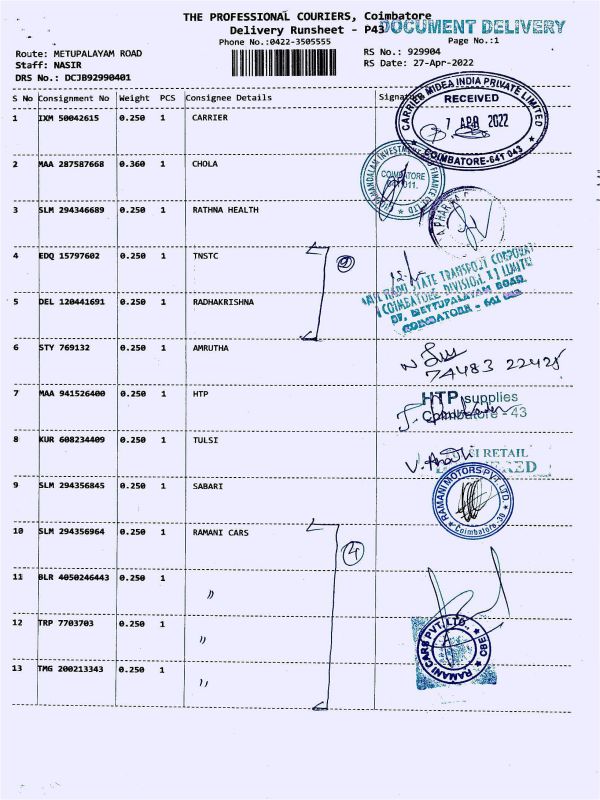 THE PROFESSIONAL COURIERS, Coimbatore
Delivery Runsheet - P43
DOCUMENT DELIVERY
Phone No.:0422-3505555
Page No.:1
Route: METUPALAYAM ROAD
RS No.: 929904
Staff: NASIR
RS Date: 27-Apr-2022
DRS No.: DCJB92990401
S No Consignment No Weight PCS Consignee Details
1 IXM 50042615 0.250 1 CARRIER
CARRIER MIDEA INDIA PRIVATE LIMITED
RECEIVED
7 APR 2022
COIMBATORE-641 043
2 MAA 287587668 0.360 1 CHOLA
COIMBATORE
3 SLM 294346689 0.250 1 RATHNA HEALTH
4 EDQ 15797602 0.250 1 TNSTC
STATE TRANSPORT
(COIMBATORE DIVISION
METTUPALAYAM ROAD
COIMBATORE - 641
5 DEL 120441691 0.250 1 RADHAKRISHNA
6 STY 769132 0.250 1 AMRUTHA
74483 22425
7 MAA 941526400 0.250 1 HTP
HTP supplies
Coimbatore - 43
8 KUR 608234409 0.250 1 TULSI
RETAIL
9 SLM 294356845 0.250 1 SABARI
RAMANI MOTORS PVT. LTD.
Coimbatore-30
10 SLM 294356964 0.250 1 RAMANI CARS
4
11 BLR 4050246443 0.250 1 〃
12 TRP 7703703 0.250 1 〃
13 TMG 200213343 0.250 1 〃
RAMANI CARS PVT. LTD., CBE